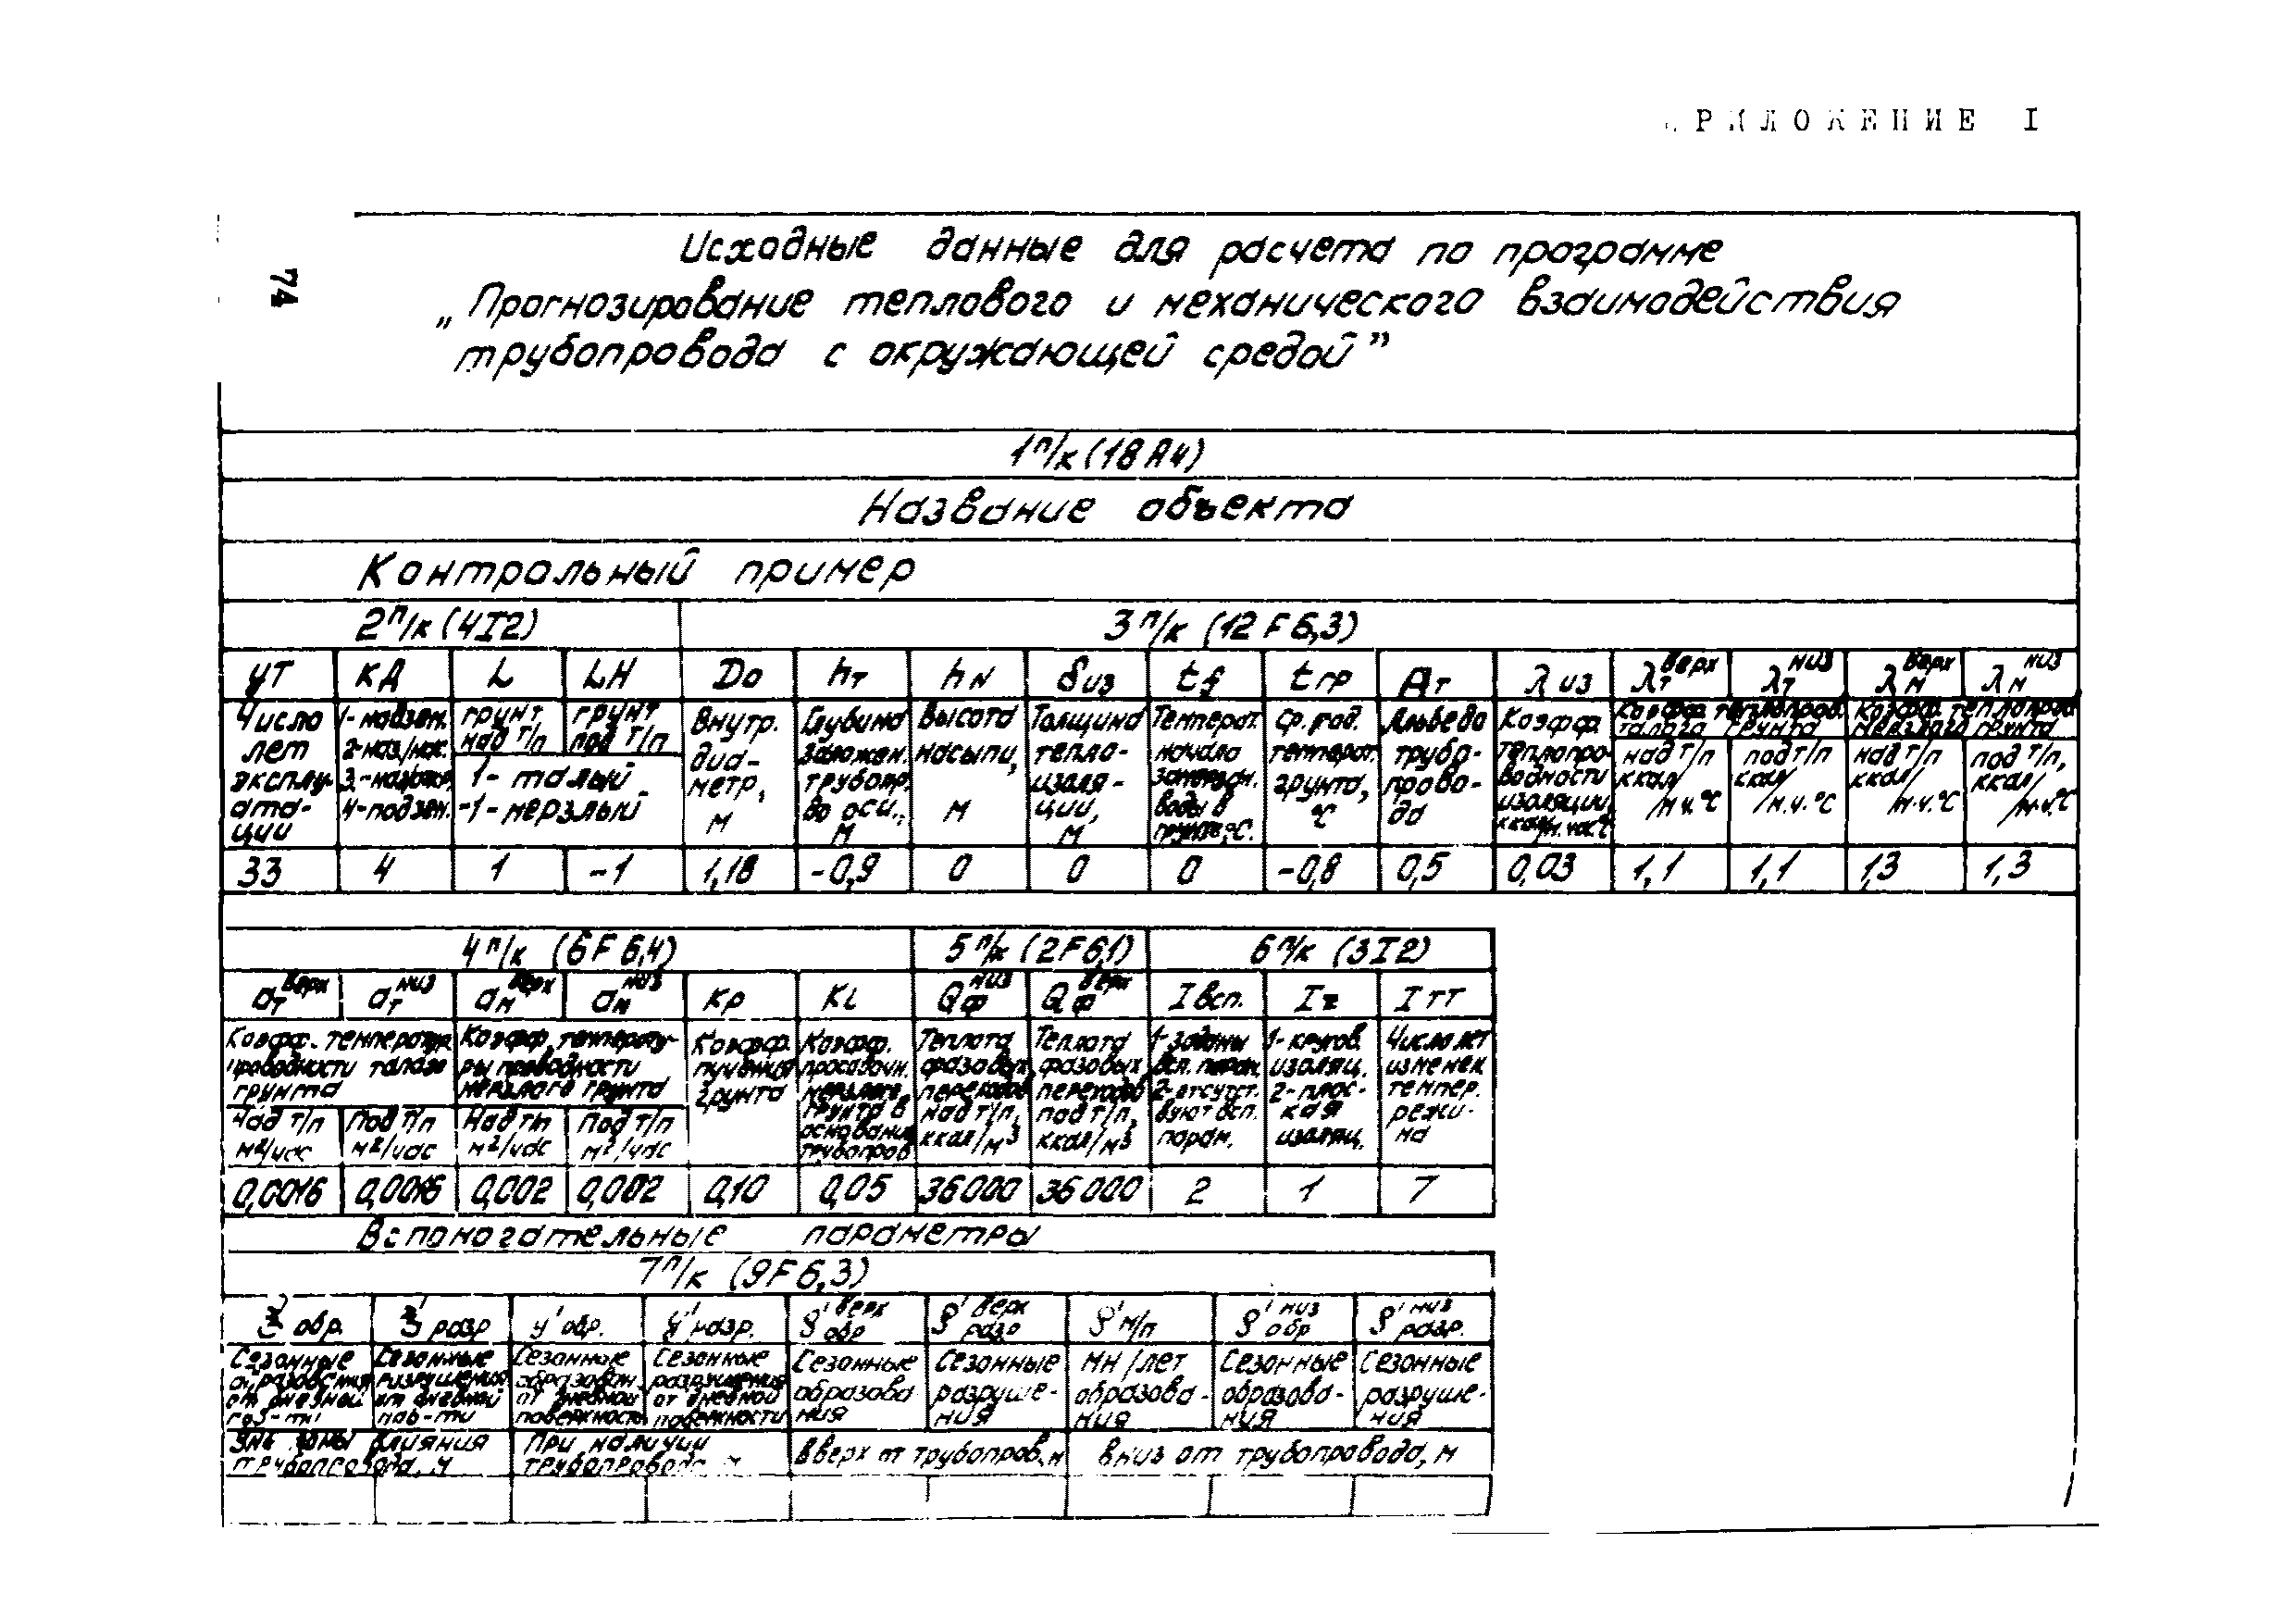 РИЛОЖЕНИЕ I
74
Исходные данные для расчета по программе
„Прогнозирование теплового и механического взаимодействия
трубопровода с окружающей средой”
1 п/к (18 А4)
Название объекта
Контрольный пример
2 п/к (4I2) 3 п/к (12 F 6,3)
УТ КД L LН Dо hт hN δиз tf tгр Ат λиз λт верх λт низ λм верх λм низ
Число лет эксплуатации
1-надзем. 2-наз/нас. 4-подзем.
грунт над т/п
грунт под т/п
1- талый
-1- мерзлый
Внутр. диаметр, м
Глубина заложен. трубопр. до оси, м
Высота насыпи, м
Толщина теплоизоляции, м
Температ. начала замерзан. воды в грунте, °С.
Ср. год. температ. грунта, °С
Альбедо трубопровода
Коэфф. теплопроводности изоляции, ккал/м.час°С
Коэфф. теплопров. талого грунта
Коэфф. теплопров. мерзлого грунта
над т/п ккал/м.ч.°С
под т/п ккал/м.ч.°С
над т/п ккал/м.ч.°С
под т/п, ккал/м.ч.°С
33 4 1 -1 1,18 -0,9 0 0 0 -0,8 0,5 0,03 1,1 1,1 1,3 1,3
4 п/к (6F 6,4) 5 п/к (2F6,1) 6 п/к (3I2)
ат верх ат низ ам верх ам низ Кр КL Qф низ Qф верх Iвсп. Iz Iтт
Коэфф. температуропроводности талого грунта
Коэфф. температуры проводности мерзлого грунта
Над т/п м2/час
Под т/п м2/час
Над т/п м2/час
Под т/п м2/час
Коэфф. пучения грунта
Коэфф. просадочн. мерзлого грунта в основании трубопров.
Теплота фазовых переходов над т/п, ккал/м3
Теплота фазовых переходов под т/п, ккал/м3
1-заданы всп. парам. 2-отсутствуют всп. парам.
1-кругов. изоляц. 2-плоская изоляц.
Число лет изменен. темпер. режима
0,0016 0,0016 0,002 0,002 0,10 0,05 36000 36000 2 1 7
Вспомогательные параметры
7 п/к (9F 6,3)
ξ' обр. ξ' разр у' обр. у' разр. ρ' верх обр ρ' верх разр ρ' м/л ρ' низ обр ρ' низ разр.
Сезонные образования от дневной пов-ти
Сезонные разрушения от дневной пов-ти
Сезонные образован. от дневной поверхности
Сезонные разрушения от дневной поверхности
Сезонные образования
Сезонные разрушения
мн/лет образования
Сезонные образования
Сезонные разрушения
Вне зоны влияния трубопровода, м
При наличии трубопровода, м
Вверх от трубопров., м
вниз от трубопровода, м